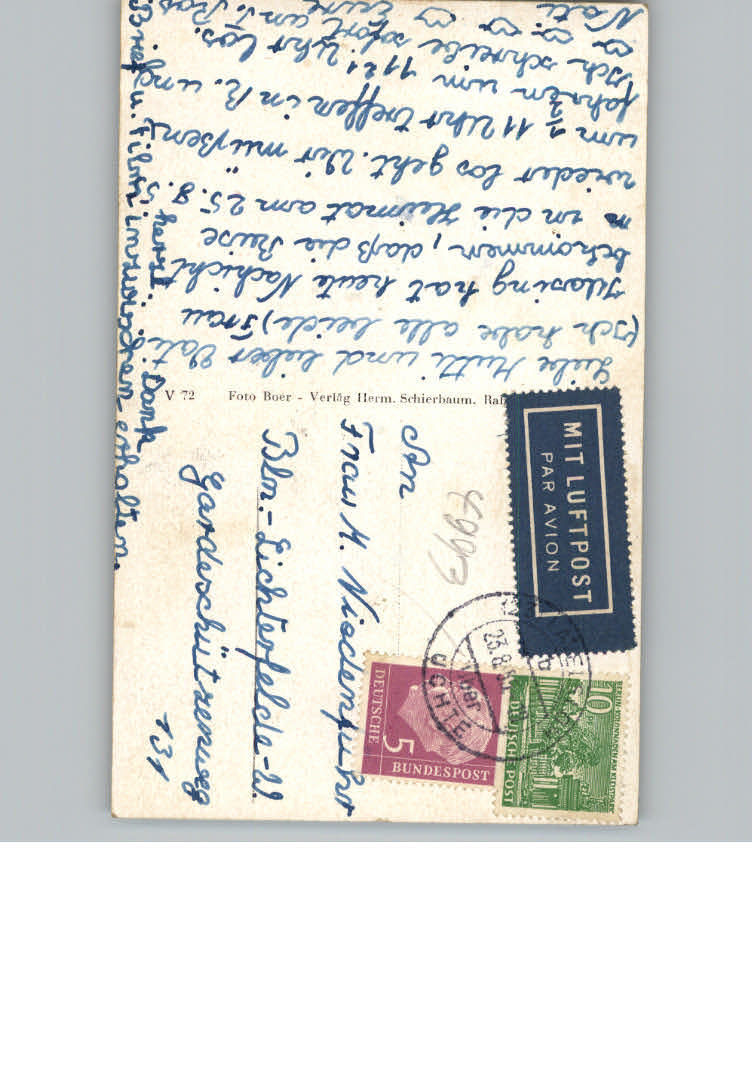 Liebe Mutti und lieber Vati
(Ich habe alle beide) Frau
Klasing hat heute Nachricht
bekommen, daß die Reise
in die Heimat am 25. 8.
wieder los geht. Wir müßen
um ½ 11 Uhr treffen in R. und
fahren um 11 21 Uhr los.
Ich schreibe sofort an
Eure
herzl. Dank
Brief u. Film inzwischen erhalten.
V 72 Foto Boer - Verlag Herm. Schierbaum,
MIT LUFTPOST
PAR AVION
An
Frau M. Niedenführ
Bln.-Lichterfelde-W.
Gardeschützenweg
131
4993
DEUTSCHE
BUNDESPOST
5
10
DEUTSCHE POST
UCHTE
23.8.